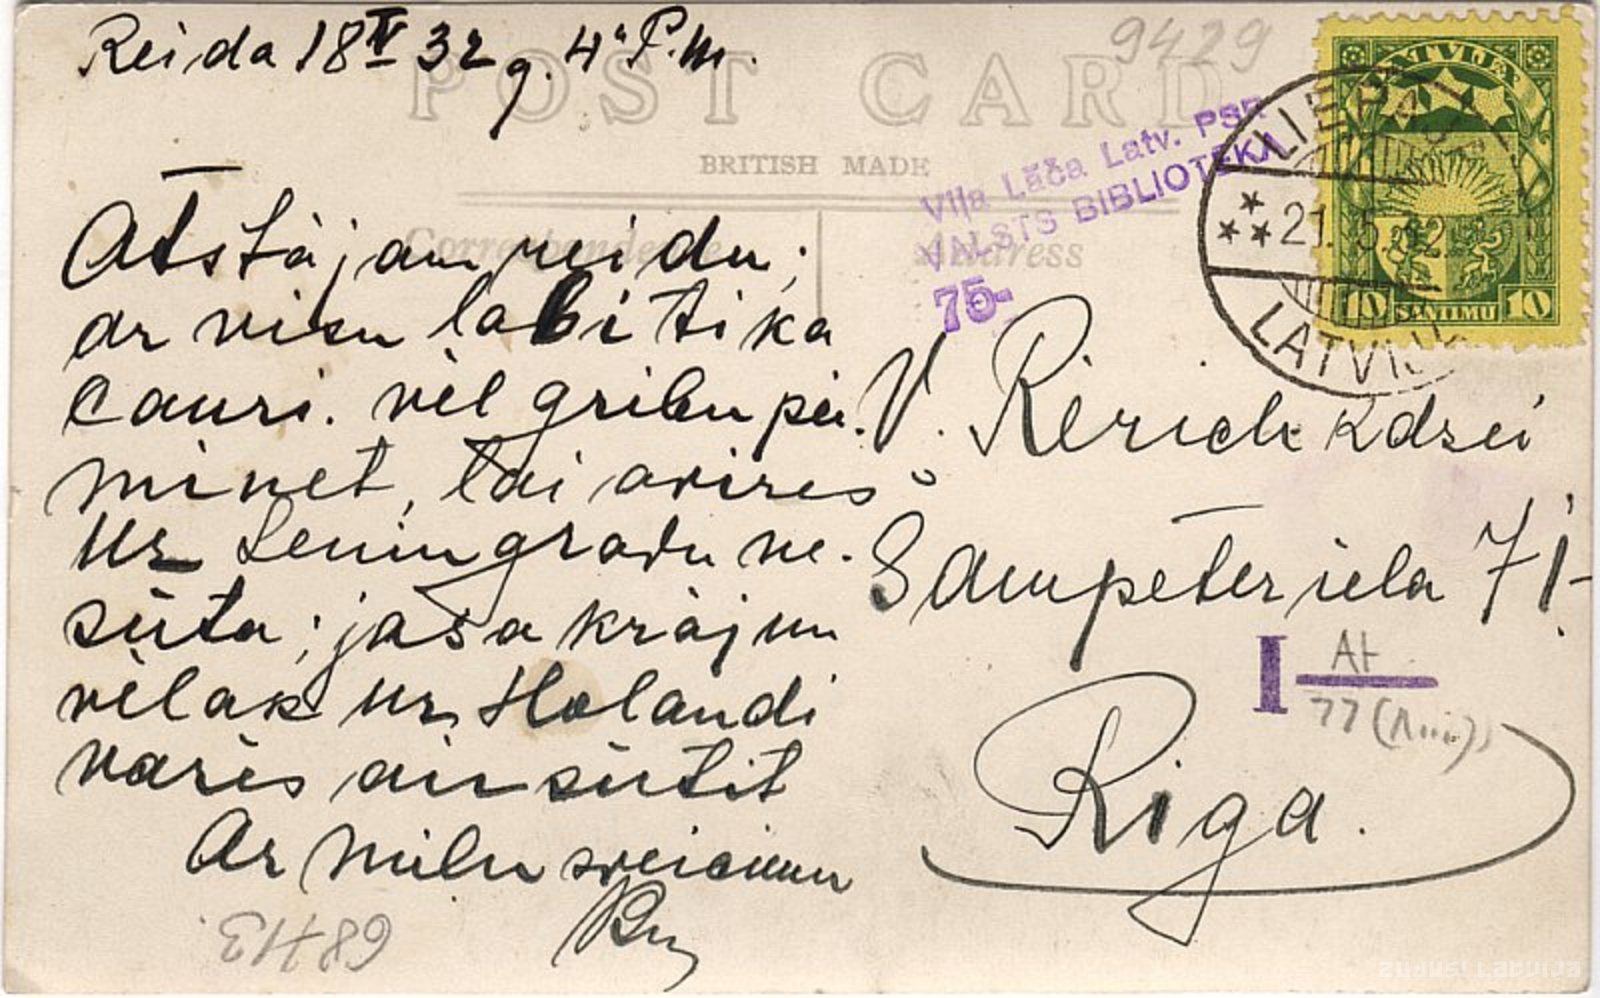 Reida 18 IV 32 g. 4" P.m.
POST CARD
BRITISH MADE
Correspondence
Address
9429
Viļa Lāča Latv. PSR
VALSTS BIBLIOTEKA
75-
LIEPAJA
21. 5 32
LATVIJA
LATVIJA
10 SANTIMU 10
Atstājam reidu;
ar visu labi tika
cauri. vēl gribu pie-
minet, lai avizes
uz Leningradu ne-
sūta; jaša krājum
vēlak uz Holandi
varēs aiz sūtit
Ar milu sveicienu
V. Rerich kdzei
Sampēter iela 71-
Riga.
I At
77 (
68713
zudusi latvija